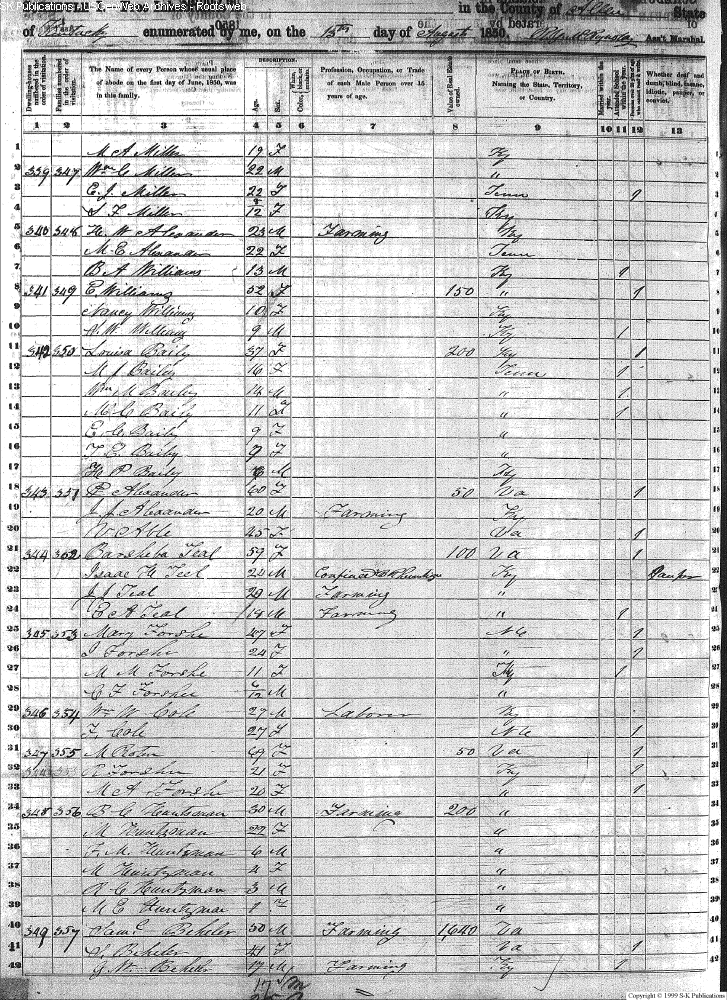 S-K Publications - USGenWeb Archives - Rootsweb
in the County of Allen State
of Kentucky enumerated by me, on the 15th day of August 1850. Ass't Marshal.
Dwelling-houses numbered in the order of visitation.
Families numbered in the order of visitation.
The Name of every Person whose usual place of abode on the first day of June, 1850, was in this family.
DESCRIPTION.
Age.
Sex.
White, black, or mulatto. Color
Profession, Occupation, or Trade of each Male Person over 15 years of age.
Value of Real Estate owned.
PLACE OF BIRTH. Naming the State, Territory, or Country.
Married within the year.
Attended School within the year.
Whether deaf and dumb, blind, insane, idiotic, pauper, or convict.
1 2 3 4 5 6 7 8 9 10 11 12 13
1 M A Miller 19 F Ky
2 339 347 Wm C Miller 22 M "
3 E. J. Miller 22 F Tenn
4 S F Miller /12 F Ky
5 340 348 H. W Alexander 23 M Farming Ky
6 M E Alexander 22 F Tenn
7 B A Williams 13 M Ky 1
8 341 349 E Williams 52 F 150 "
9 Nancy Williams 10 F Ky
10 W. Williams 9 M Ky 1
11 342 350 Louisa Baily 37 F 200 Ky 1
12 M J Baily 16 F Tenn 1
13 Wm M Baily 14 M " 1
14 M C Baily 11 " 1
15 E. C. Baily 9 F "
16 T. E. Baily 9 F "
17 P Baily 6 M Ky
18 343 351 E Alexander 60 F 50 Va 1
19 J. J. Alexander 20 M Farming Ky
20 Able 45 F Va 1
21 344 352 Barsheba Teal 59 F 100 Va 1
22 Isaac H Teel 24 M Ky
23 J J Teal 20 M Farming "
24 E A Teal 18 M Farming " 1
25 345 353 Mary Forshe 47 F NC 1
26 J Forshe 24 F " 1
27 M M Forshe 11 F Ky 1
28 C F Forshee /12 M "
29 346 354 Wm W Cole 27 M Laborer Ky
30 F. Cole 27 F NC 1
31 347 355 M 69 F 50 Va 1
32 Forshe 21 F Ky 1
33 M A Forshe 20 F " 1
34 348 356 B C Huntsman 30 M Farming 200 "
35 M Huntzman 22 F "
36 M. Huntzman 6 M "
37 M Huntzman 4 F "
38 C Huntzman 3 M "
39 M E Huntzman 1 F "
40 349 357 Saml. Beheler 50 M Farming 1,640 Va
41 S. Beheler 41 F Va 1
42 G. W Behelr 17 M Farming Ky 1
Copyright © 1999 S-K Publications